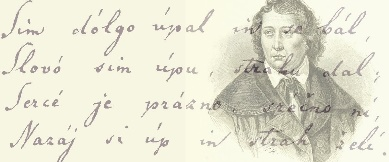 Sim dólgo úpal in se bál,
Slovó sim úpu, strahu dal;
Sercé je prázno, sréčno ni,
Nazáj si úp in strah želi.